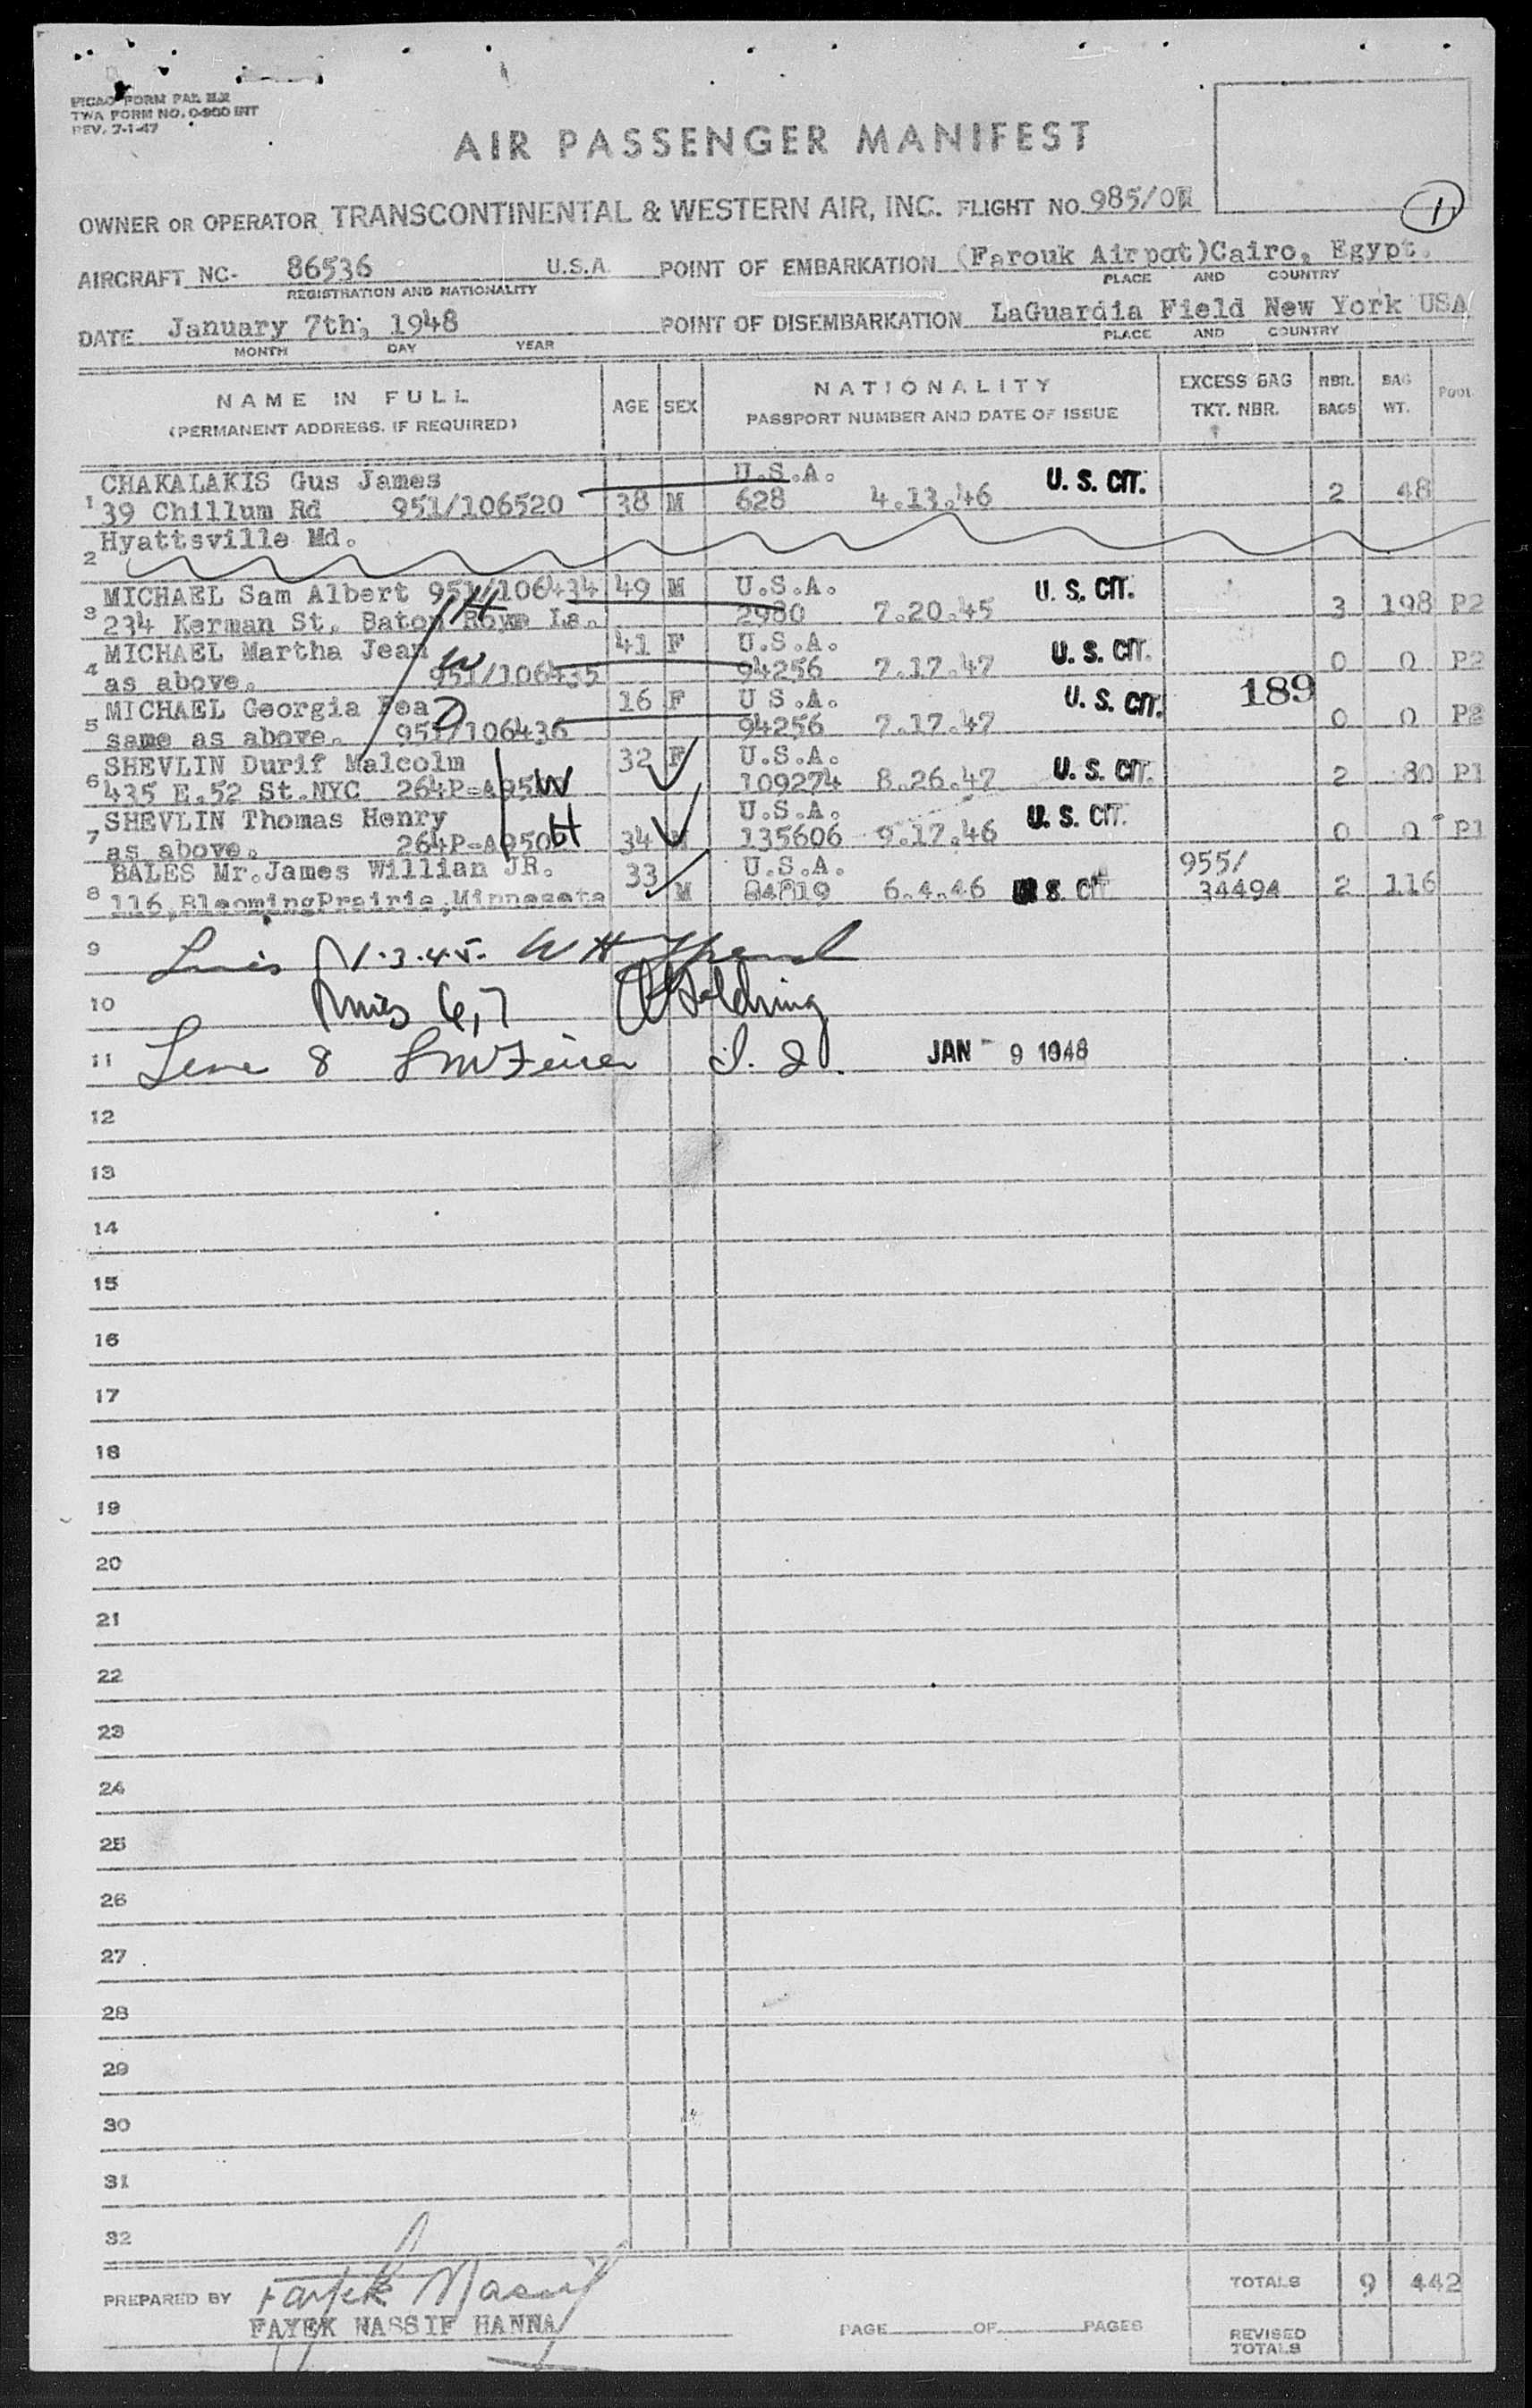 TWA FORM NO. 0-900 INT
REV. 7-1-47
AIR PASSENGER MANIFEST
OWNER OR OPERATOR TRANSCONTINENTAL & WESTERN AIR, INC. FLIGHT NO. 985/0
1
AIRCRAFT NC- 86536 U.S.A. POINT OF EMBARKATION (Farouk Airpot)Cairo, Egypt.
REGISTRATION AND NATIONALITY PLACE AND COUNTRY
DATE January 7th, 1948 POINT OF DISEMBARKATION LaGuardia Field New York USA
MONTH DAY YEAR PLACE AND COUNTRY
NAME IN FULL AGE SEX NATIONALITY EXCESS BAG NBR. BAG POOL
(PERMANENT ADDRESS, IF REQUIRED) PASSPORT NUMBER AND DATE OF ISSUE TKT. NBR. BAGS WT.
CHAKALAKIS Gus James U.S.A. U. S. CIT.
1 39 Chillum Rd 951/106520 38 M 628 4.13.46 2 48
Hyattsville Md.
2
MICHAEL Sam Albert 951/106434 49 M U.S.A. U. S. CIT.
3 234 Kerman St. Baton La. H 2980 7.20.45 3 198 P2
MICHAEL Martha Jean W 41 F U.S.A. U. S. CIT.
4 as above. 951/106435 94256 7.17.47 0 0 P2
MICHAEL Georgia Fea D 16 F U S.A. U. S. CIT. 189
5 same as above. 951/106436 94256 7.17.47 0 0 P2
SHEVLIN Durif Malcolm 32 F U.S.A.
6 435 E.52 St.NYC W 109274 8.26.47 U. S. CIT. 2 80 P1
SHEVLIN Thomas Henry U.S.A. U. S. CIT.
7 as above. H 34 M 135606 9.17.46 0 0 P1
BALES Mr.James Willian JR. 33 U.S.A. 955/
8 116,BloomingPrairie,Minnesota M 84819 6.4.46 U. S. CIT 34494 2 116
9 Lines 1.3.4.5.
10 lines 6,7
11 Line 8 JAN - 9 1948
12
13
14
15
16
17
18
19
20
21
22
23
24
25
26
27
28
29
30
31
32
PREPARED BY Fayek Nassif TOTALS 9 442
FAYEK NASSIF HANNA PAGE OF PAGES REVISED
TOTALS